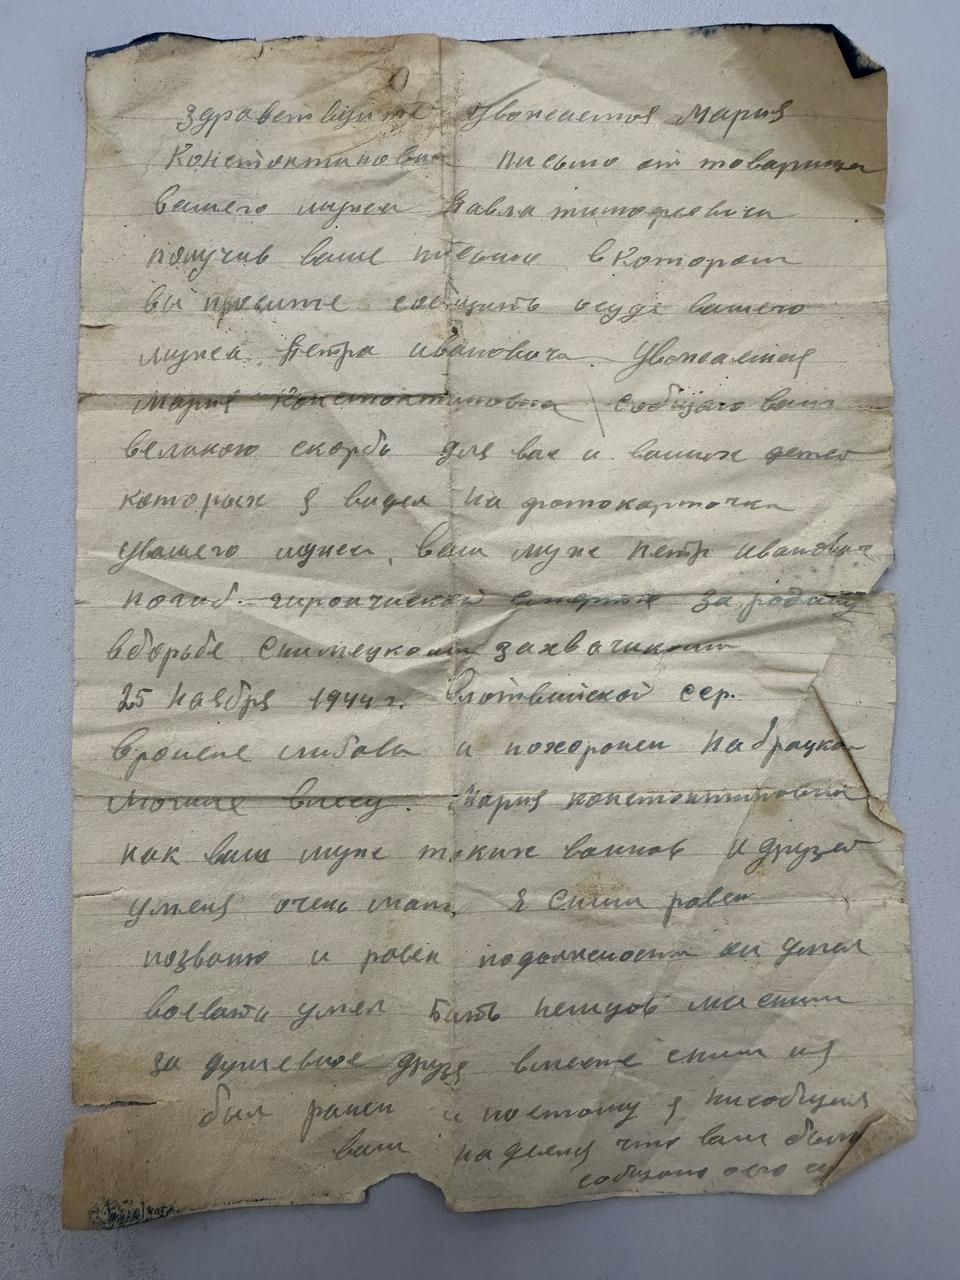 Здравствуйте Уважаемая Мария
Константиновна письмо от товарища
вашего мужа Павла тимофеевича
получив ваше письмо вкотором
вы просите сообщить осудбе вашего
мужа Петра ивановича Уважаемая
Мария Константиновна сообщаю вам
великою скорбь для вас и ваших детей
которых я видел на фотокарточки
увашего мужа, ваш муж петр иванович
погиб гироической смертью за родину
вборьбе снимецкими захвачиками
25 ноября 1944 г. влотвийской сср.
вроене либава и похоронен на брацкой
могиле влесу. Мария константиновна
как ваш муж таких воинов и друзей
уменя очень мало, я сним равен
позванию и равен подолжности он умел
воевать умел бить немцов мы сним
за душевные друзя вместе сним ия
был ранен и поэтому я нисобщил
вам надеялся что вам было
собщено оего